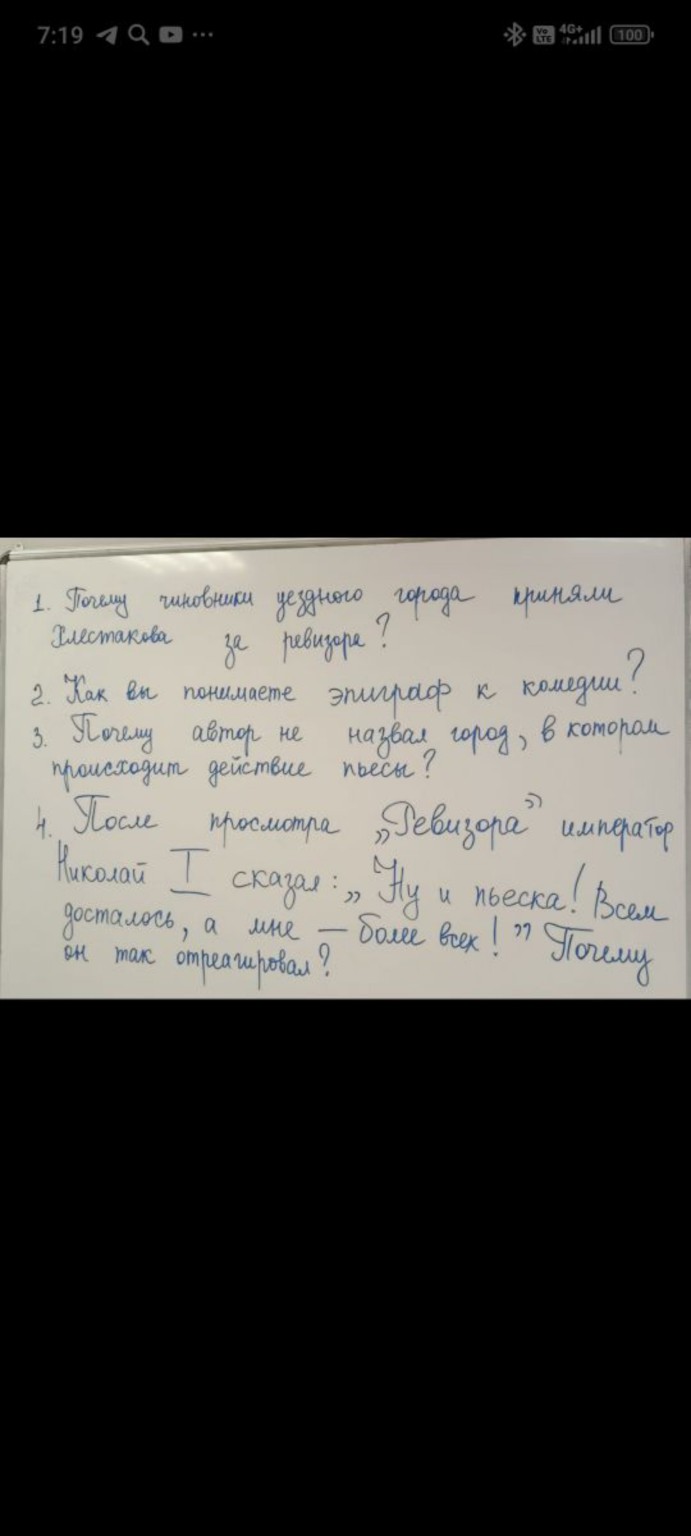 7:19
Vo LTE 4G+ 100
1. Почему чиновники уездного города приняли
Хлестакова за ревизора?
2. Как вы понимаете эпиграф к комедии?
3. Почему автор не назвал город, в котором
происходит действие пьесы?
4. После просмотра „Ревизора” император
Николай I сказал: „Ну и пьеска! Всем
досталось, а мне — более всех!” Почему
он так отреагировал?